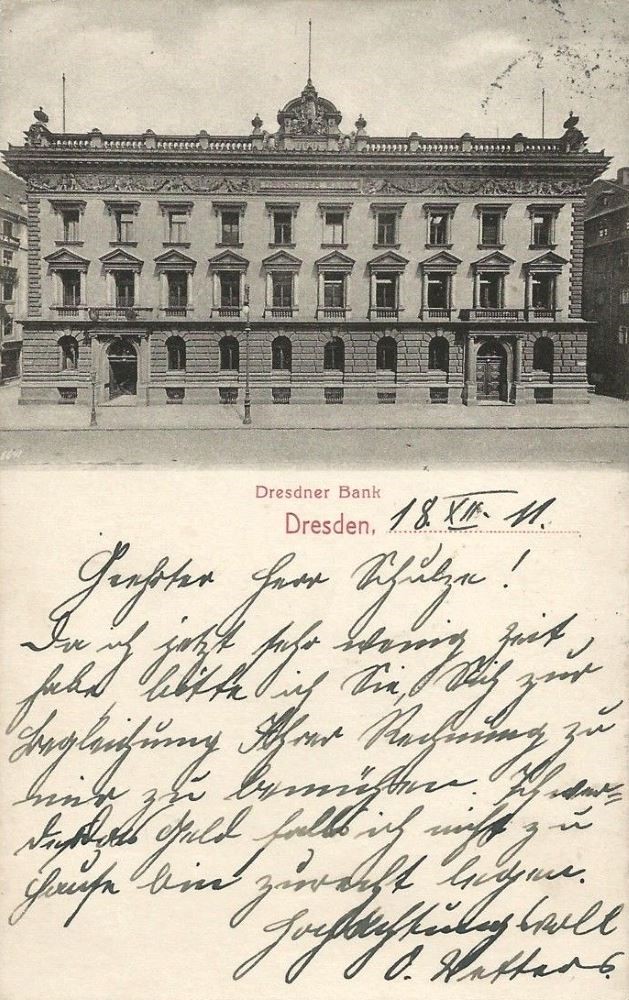 Dresdner Bank
Dresden, 18. XII. 11.
Geehrter Herr Schulze!
Da ich jetzt sehr wenig Zeit
habe, bitte ich Sie, Sich zur
Begleichung Ihrer Rechnung zu
mir zu bemühen. Ich wer-
de das Geld falls ich nicht zu
Hause bin zurecht legen.
Hochachtungsvoll
O. Vetters.